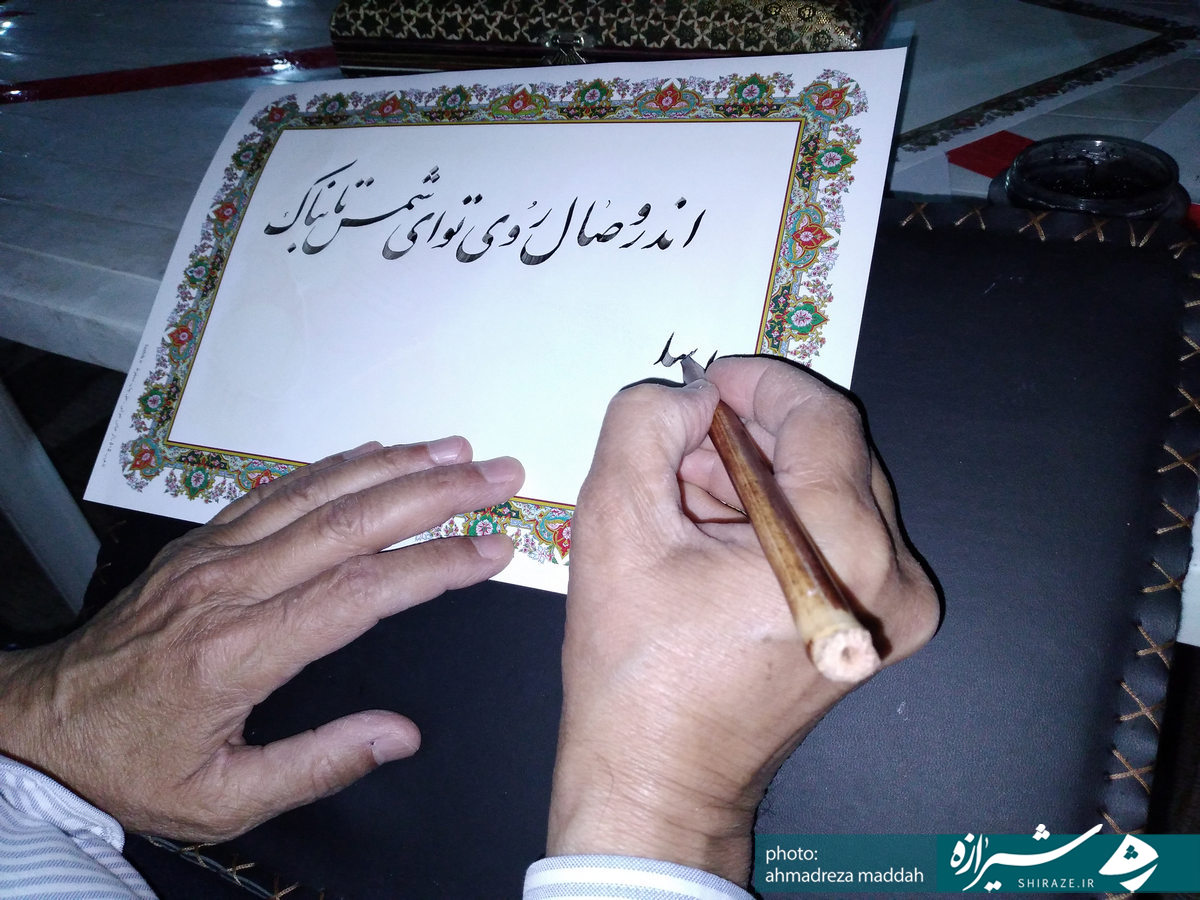 اندر وصال روی تو ای شمس تابناک
photo:
ahmadreza maddah
شیرازه
SHIRAZE.IR